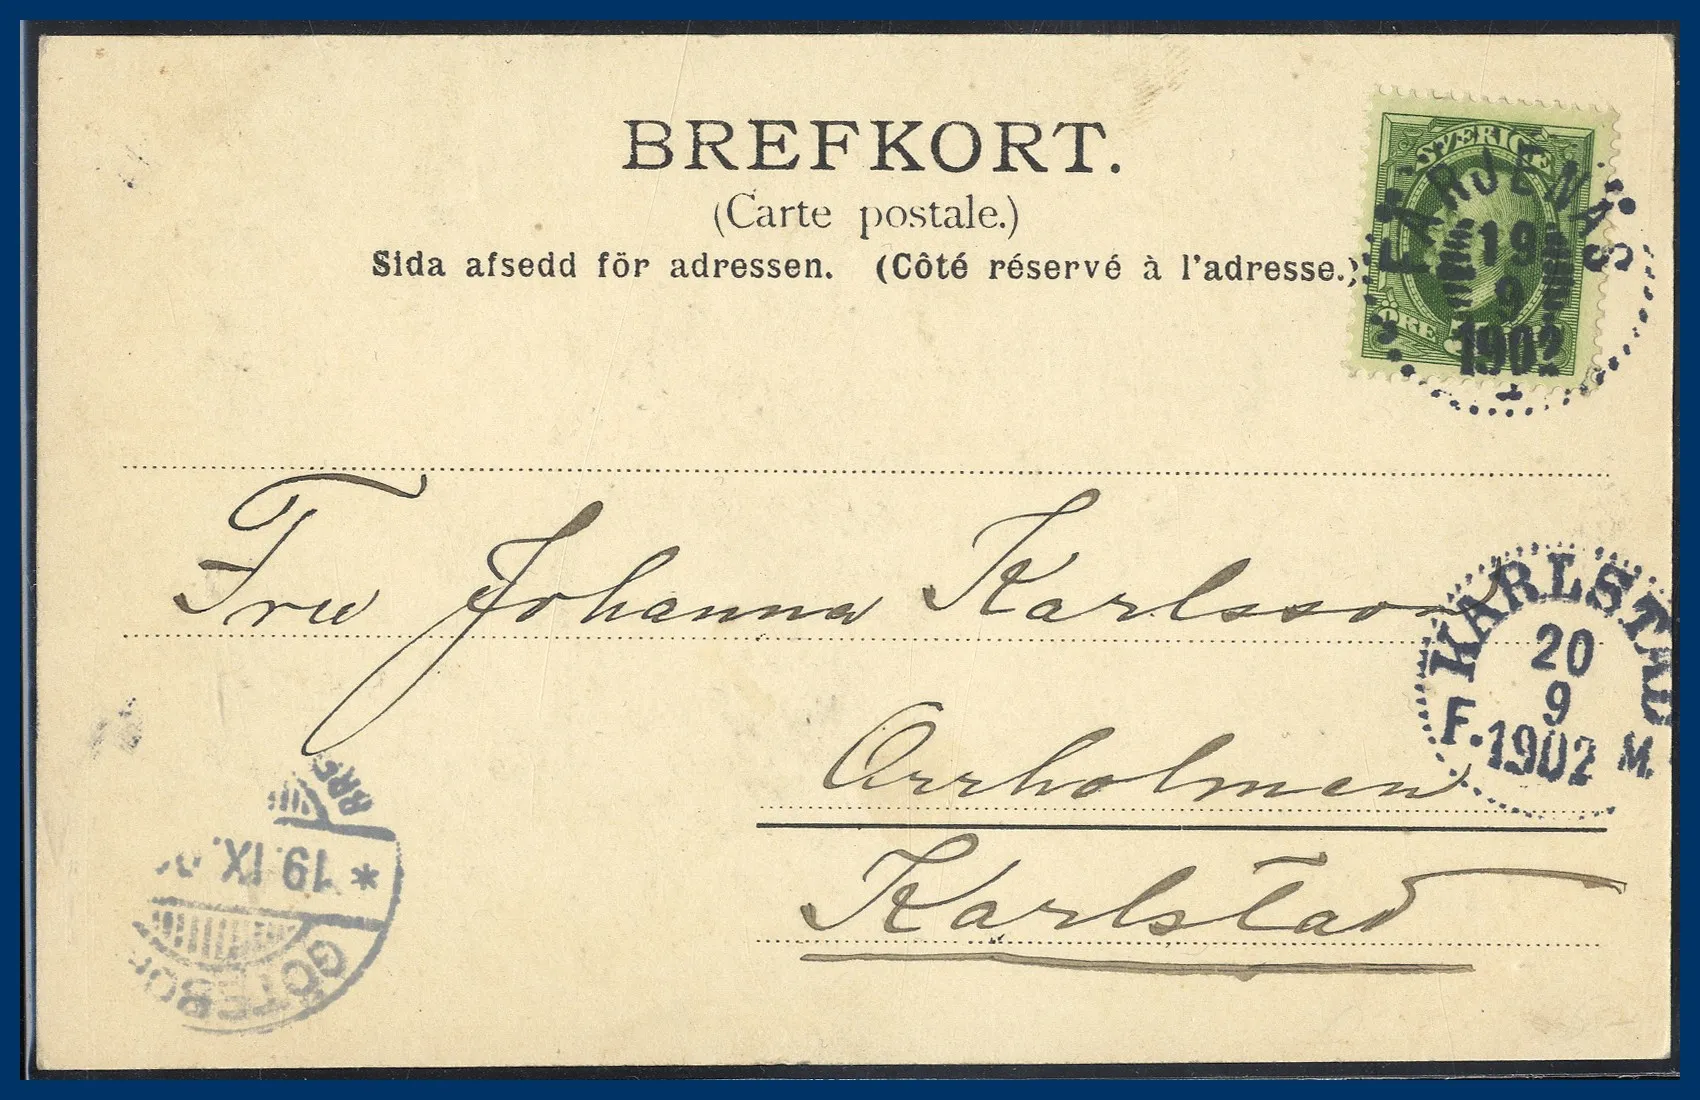 BREFKORT.
(Carte postale.)
Sida afsedd för adressen. (Côté réservé à l'adresse.)
SVERIGE
ÖRE 5
FÄRJENÄS
19
9
1902
Fru Johanna Karlsson
Orrholmen
Karlstad
KARLSTAD
20
9
F. 1902 M.
* 19. IX.
GÖTEBOR